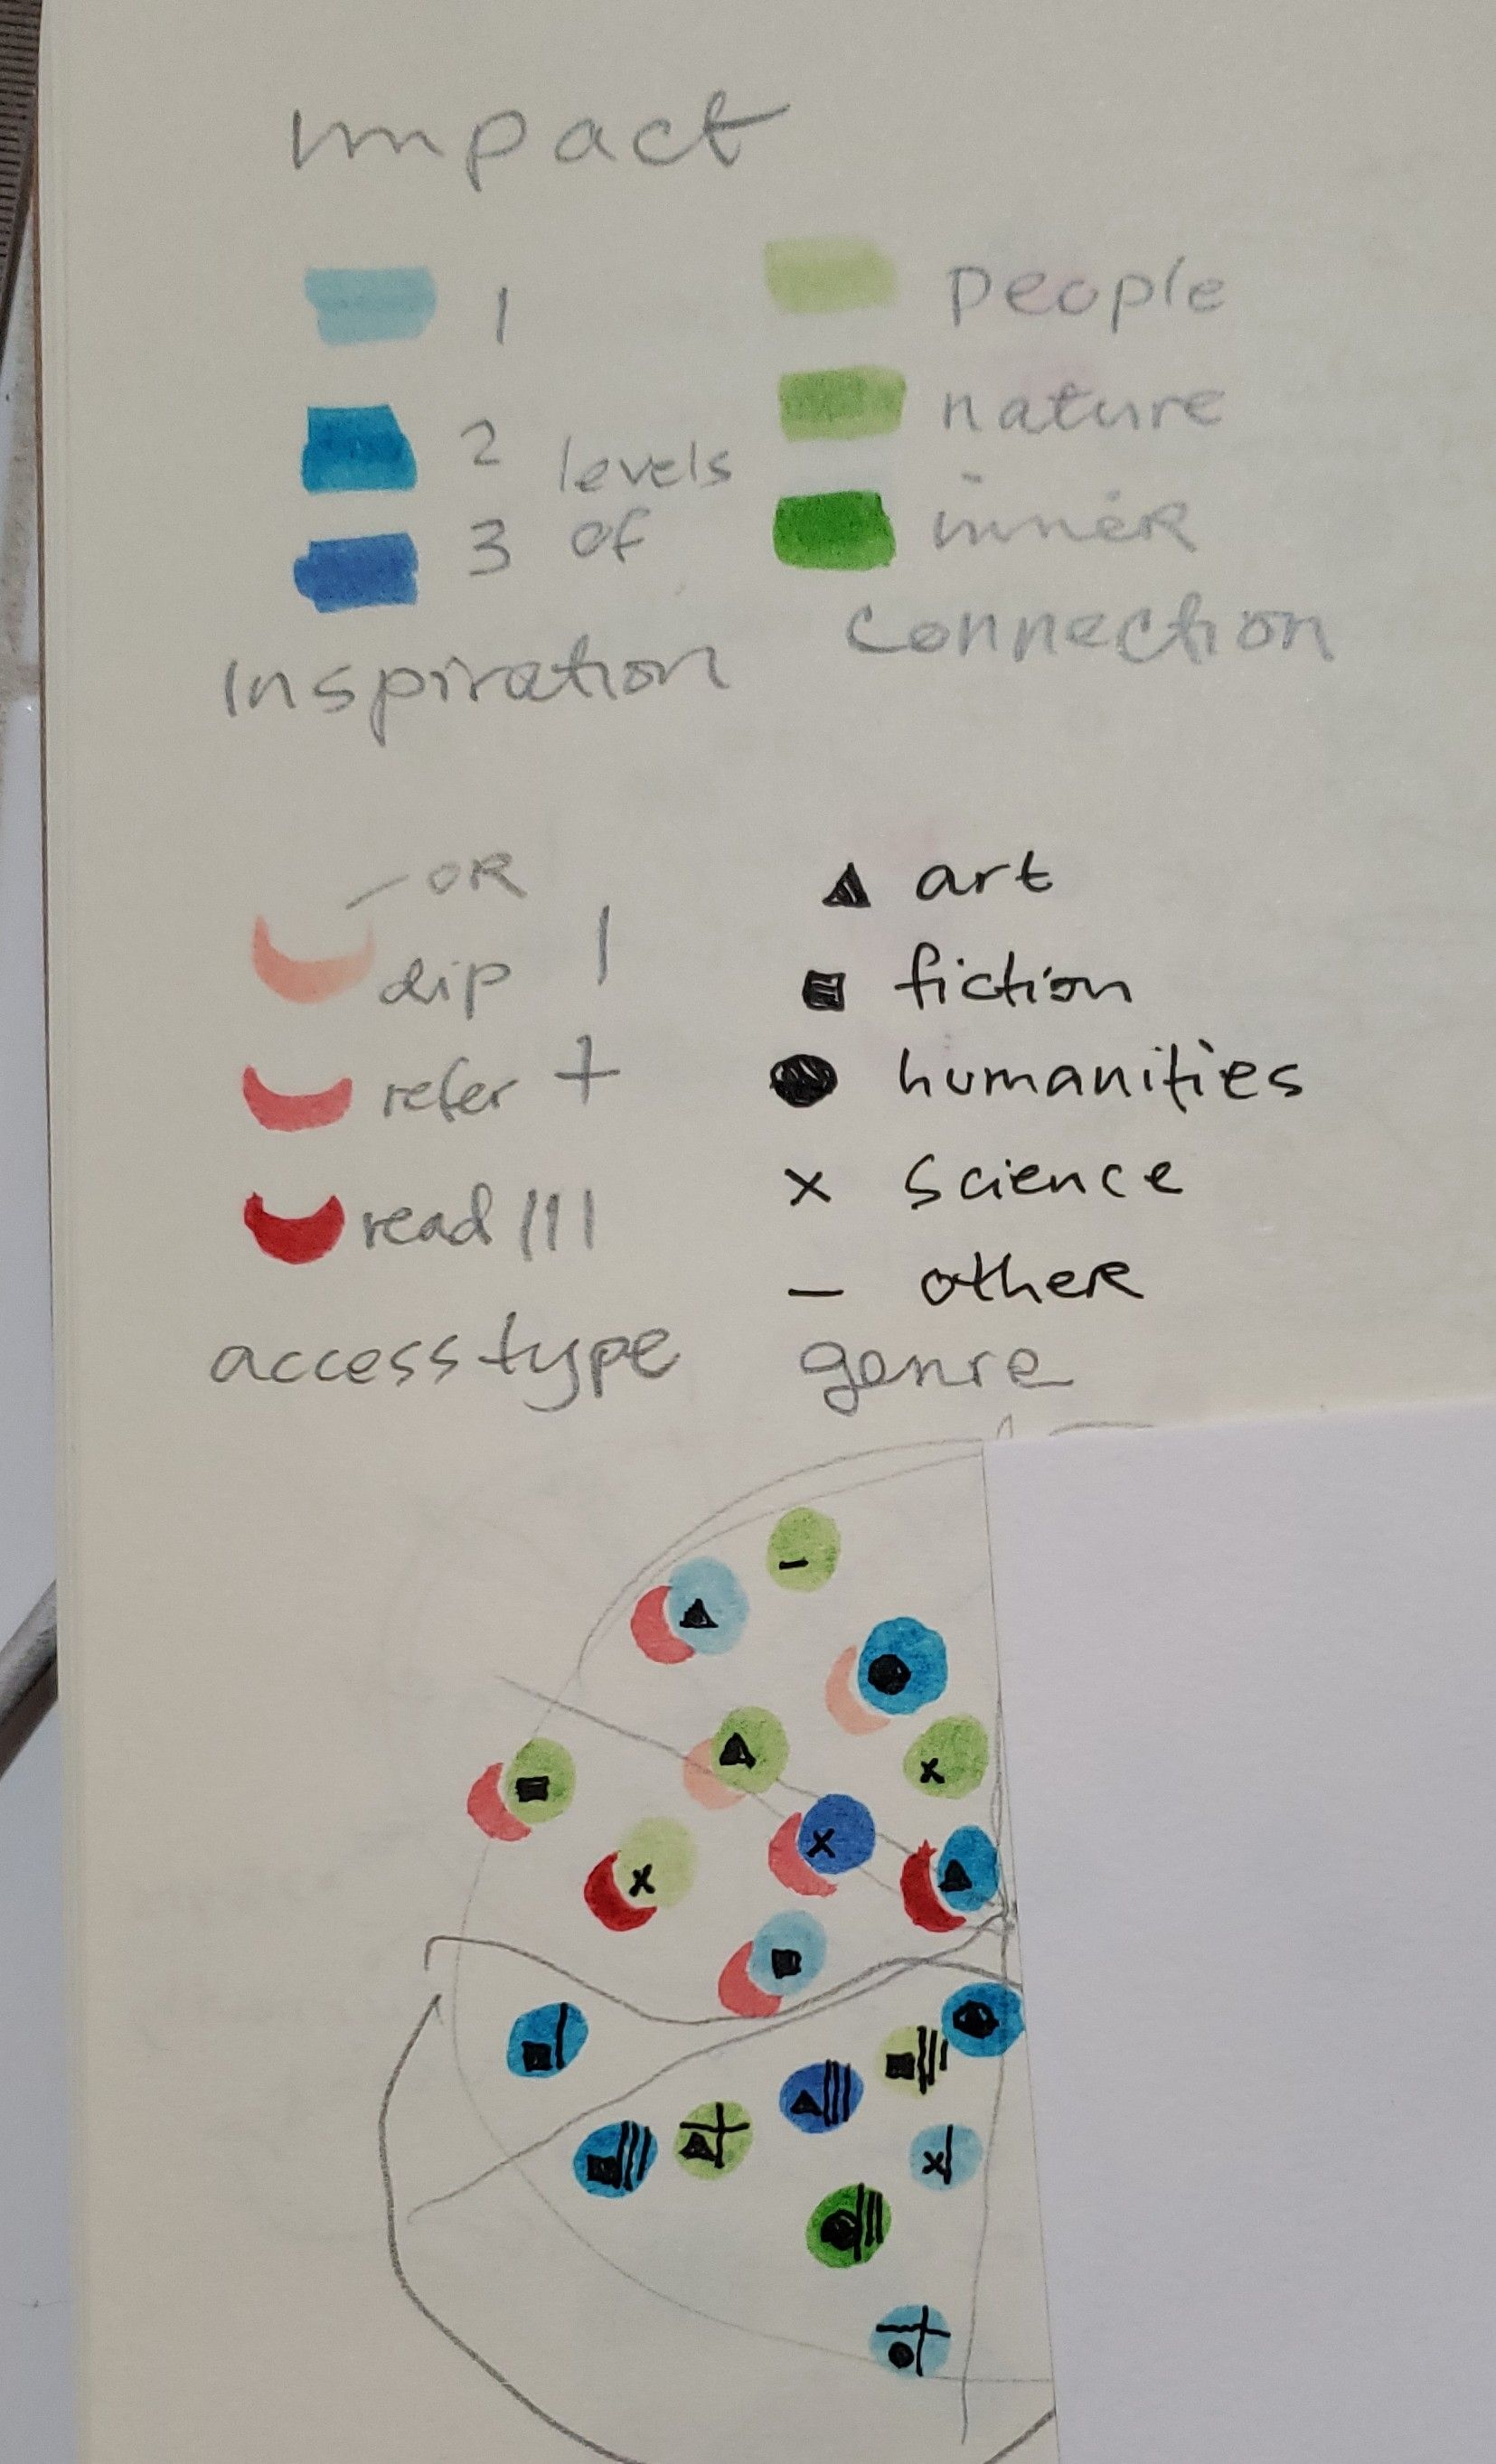 impact
1
2 levels
3 of
Inspiration
people
nature
inner
connection
OR
dip |
refer +
read |||
access type
art
fiction
humanities
x science
– other
genre